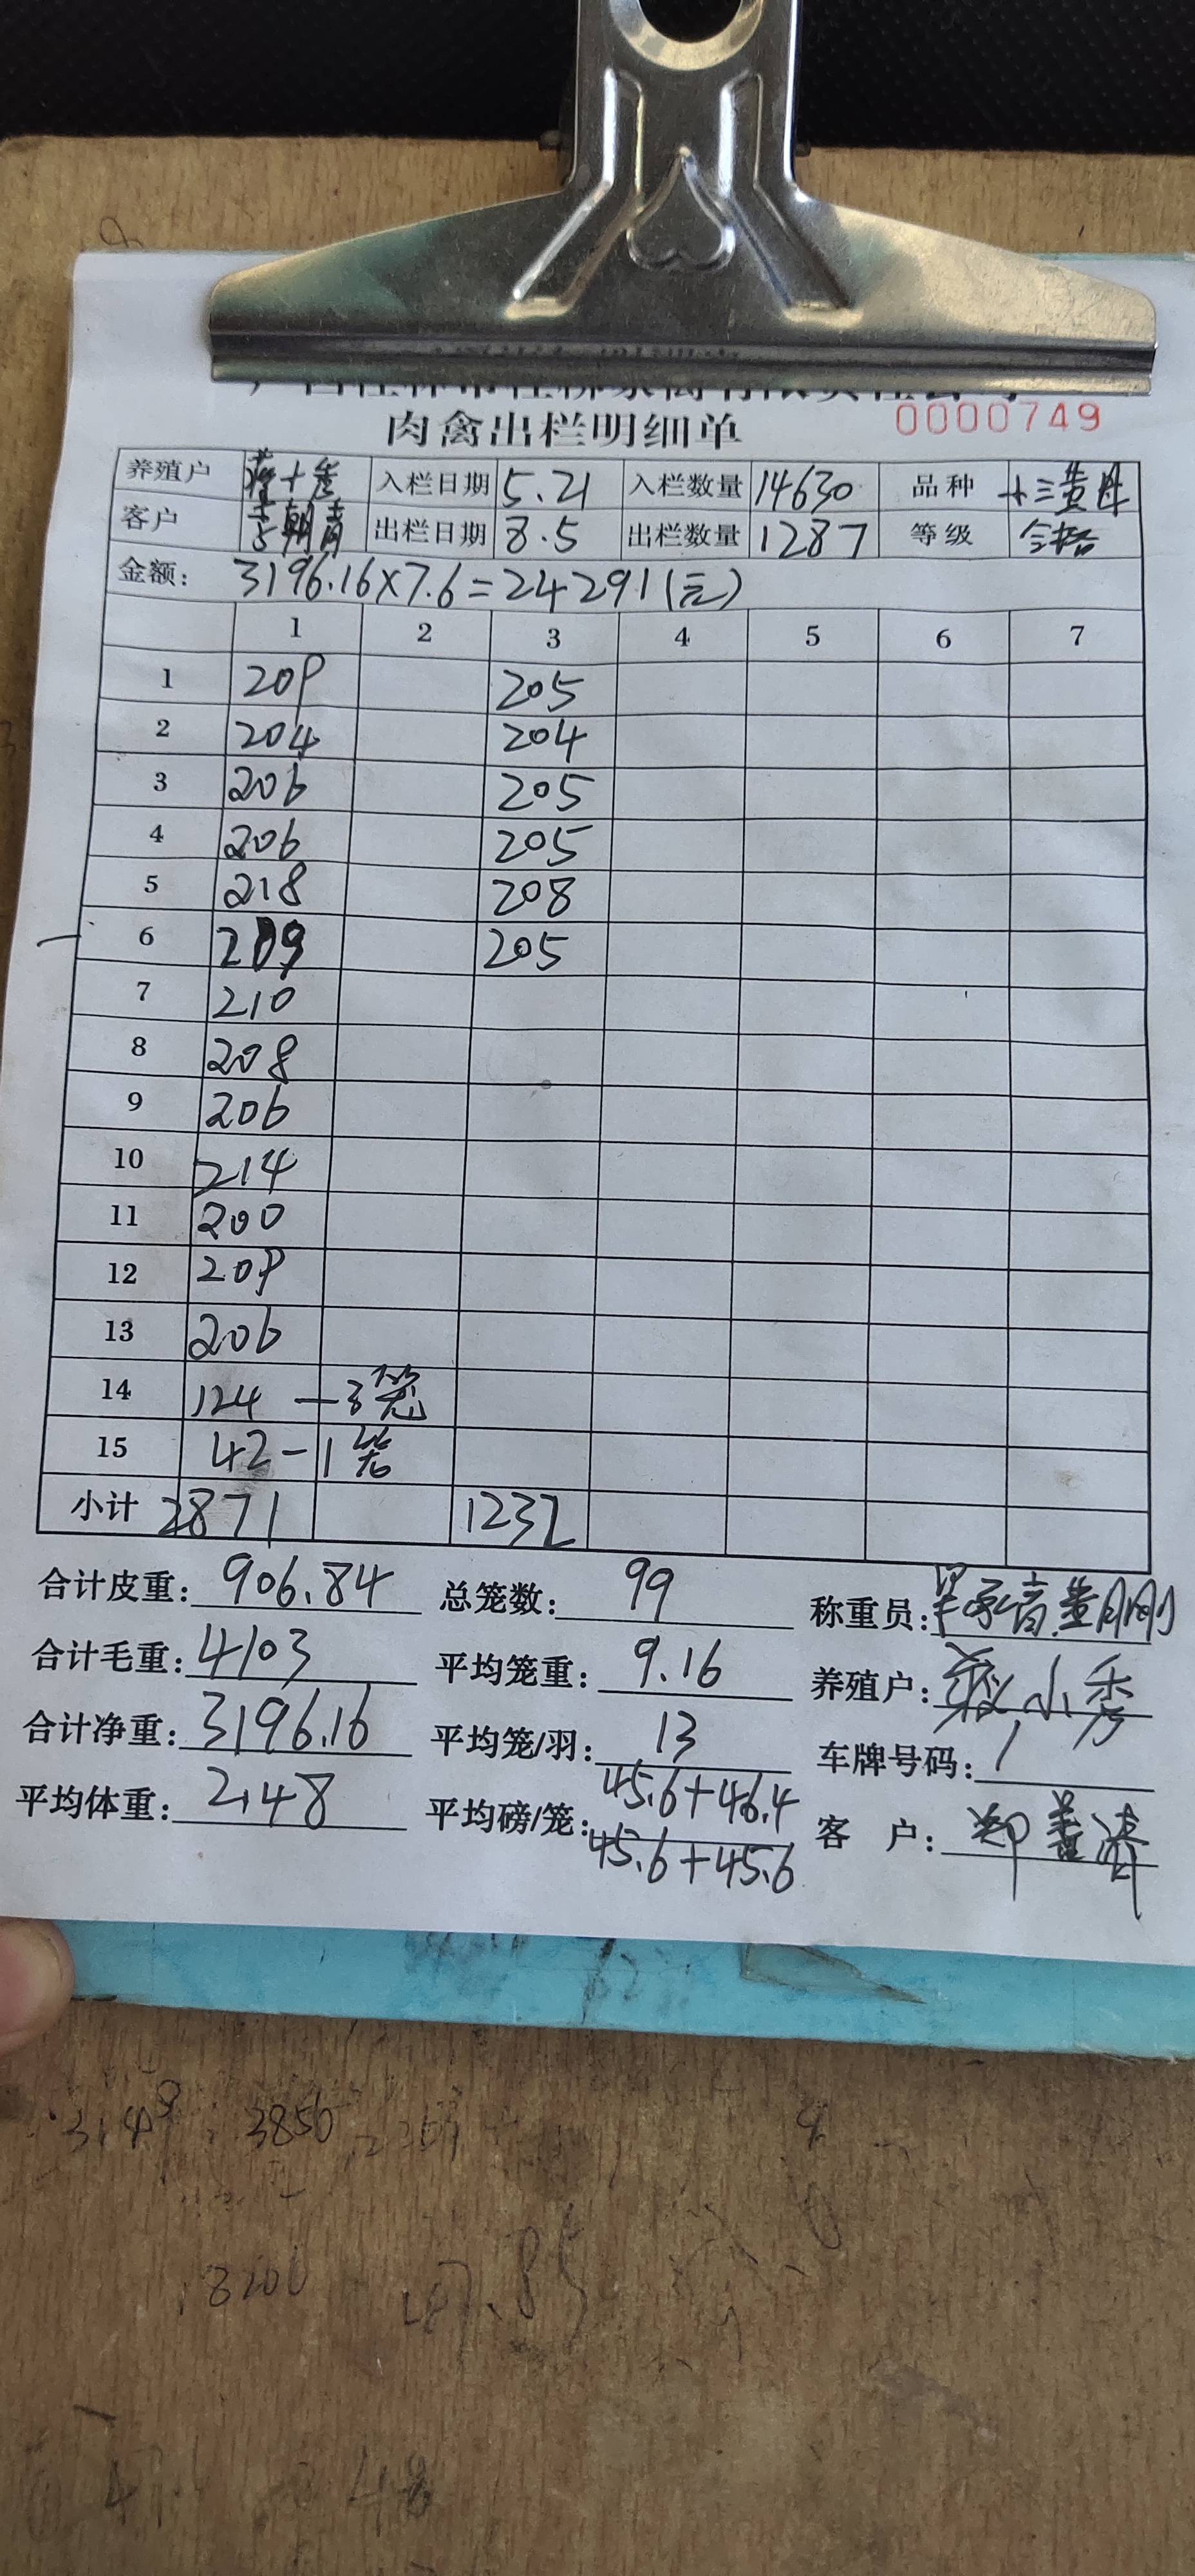 肉禽出栏明细单 0000749
养殖户 入栏日期 5.21 入栏数量 14630 品种
客户 出栏日期 8.5 出栏数量 1287 等级 合格
金额: 3196.16×7.6=24291(元)
1 2 3 4 5 6 7
1 209 205
2 204 204
3 206 205
4 206 205
5 218 208
6 209 205
7 210
8 208
9 206
10 214
11 200
12 209
13 206
14 124 — 3笼
15 42 - 1笼
小计 2871 1232
合计皮重: 906.84 总笼数: 99 称重员:
合计毛重: 4103 平均笼重: 9.16 养殖户: 小秀
合计净重: 3196.16 平均笼/羽: 13 车牌号码: /
平均体重: 2.48 平均磅/笼: 45.6+46.4 客 户:
45.6+45.6
3850